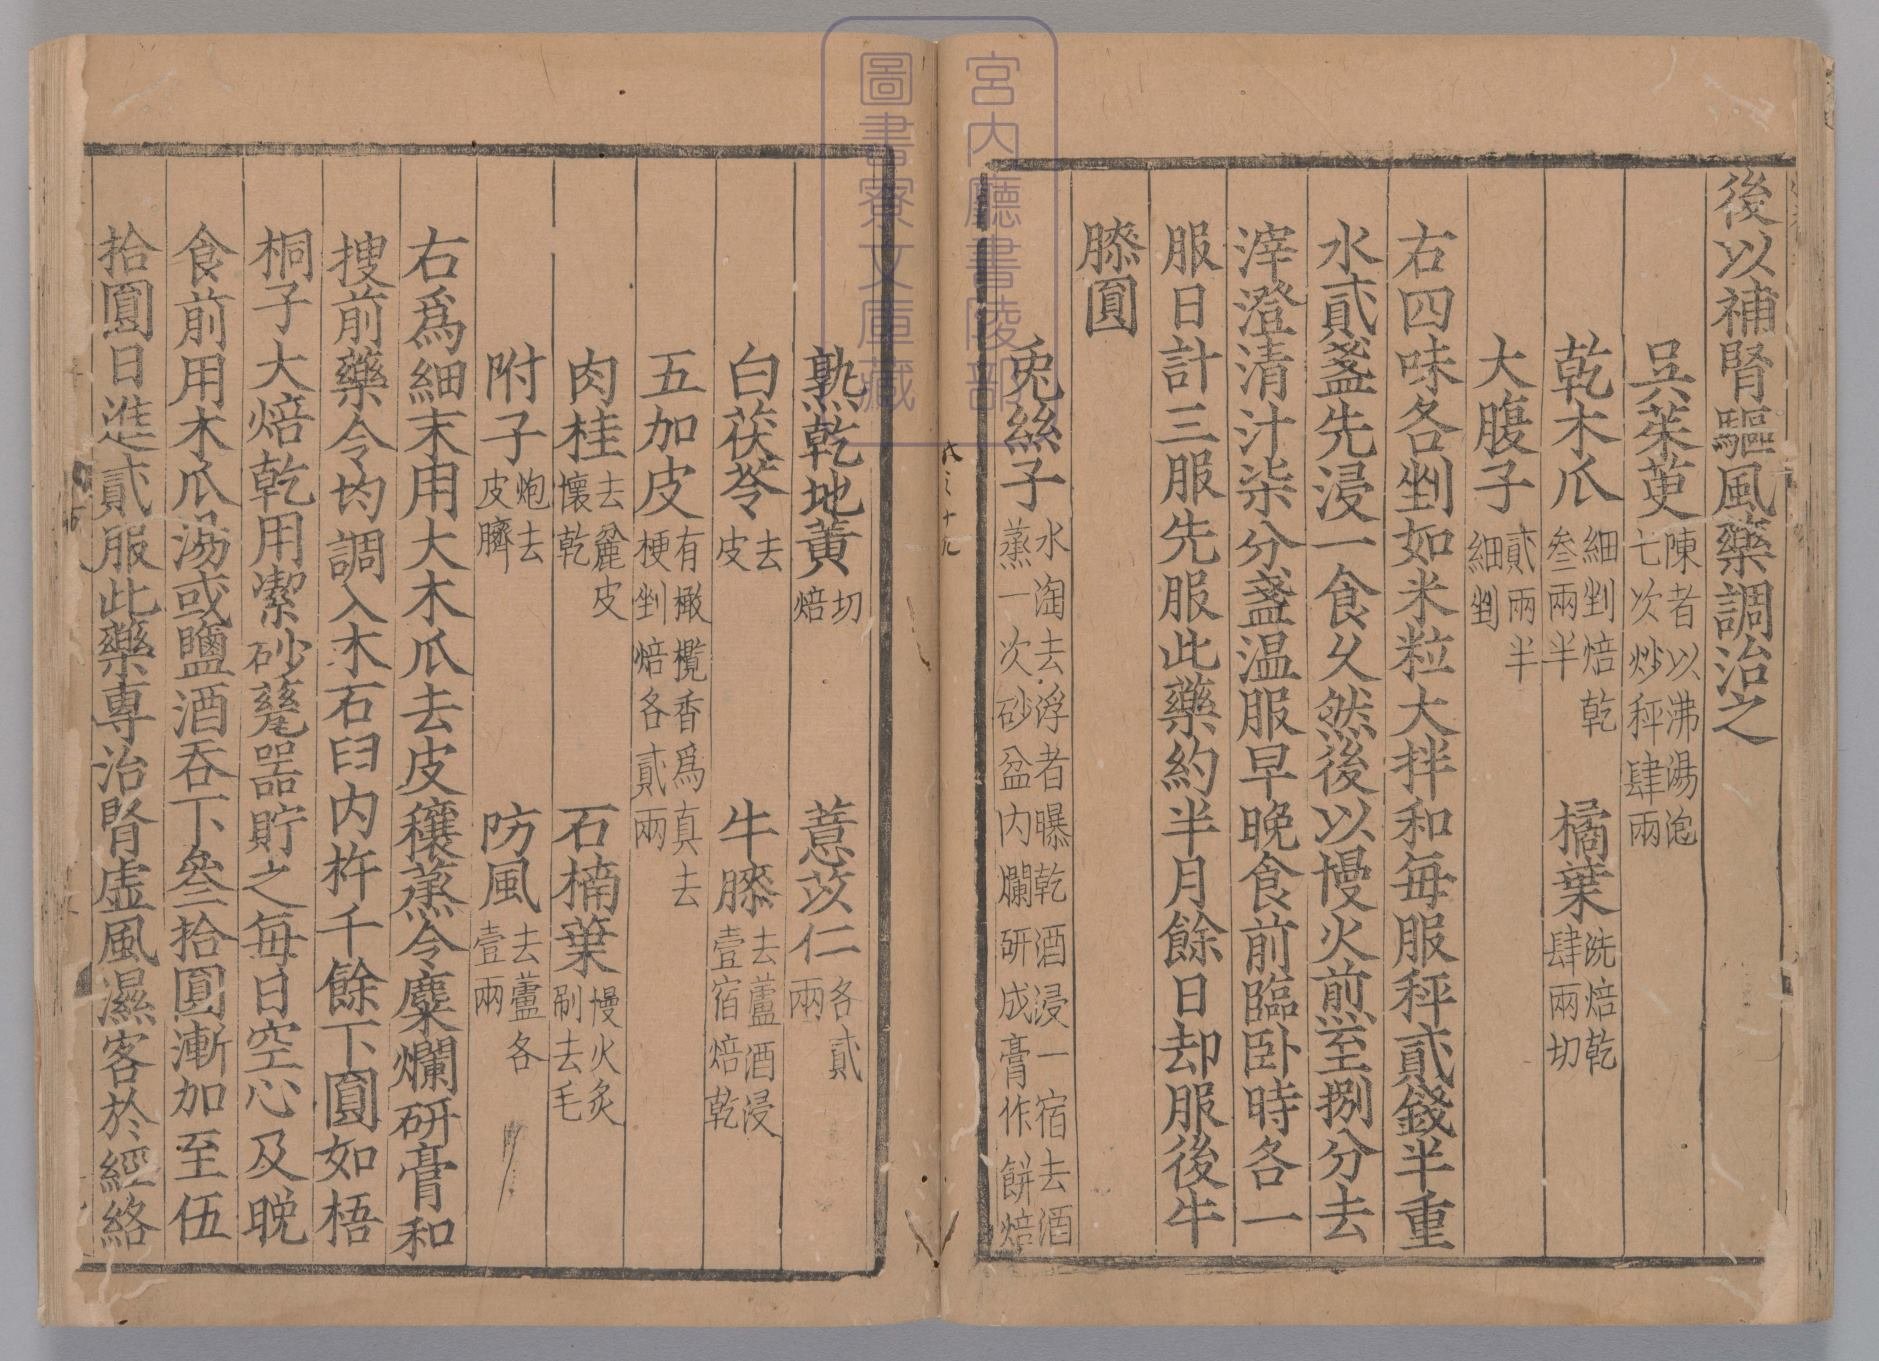 後以補腎驅風藥調治之
吳茱萸 陳者以沸湯泡七次炒秤肆兩
乾木瓜 細剉焙乾叁兩半 橘葉 洗焙乾肆兩切
大腹子 貳兩半細剉
右四味各剉如米粒大拌和每服秤貳錢半重
水貳盞先浸一食久然後以慢火煎至捌分去
滓澄清汁柒分盞温服早晚食前臨卧時各一
服日計三服先服此藥約半月餘日却服後牛
膝圓
兎絲子 水淘去浮者曝乾酒浸一宿去酒蒸一次砂盆内爛研成膏作餅焙
熟乾地黄 切焙 薏苡仁 各貳兩
白茯苓 去皮 牛膝 去蘆酒浸壹宿焙乾
五加皮 有橄欖香爲真去梗剉焙各貳兩
肉桂 去麄皮懷乾 石楠葉 慢火炙刷去毛
附子 炮去皮臍 防風 去蘆各壹兩
右爲細末用大木瓜去皮穰蒸令麋爛研膏和
搜前藥令均調入木石臼内杵千餘下圓如梧
桐子大焙乾用潔砂甆器貯之每日空心及晚
食前用木瓜湯或鹽酒吞下叁拾圓漸加至伍
拾圓日進貳服此藥專治腎虛風濕客於經絡
宮内廳書陵部
圖書寮文庫藏